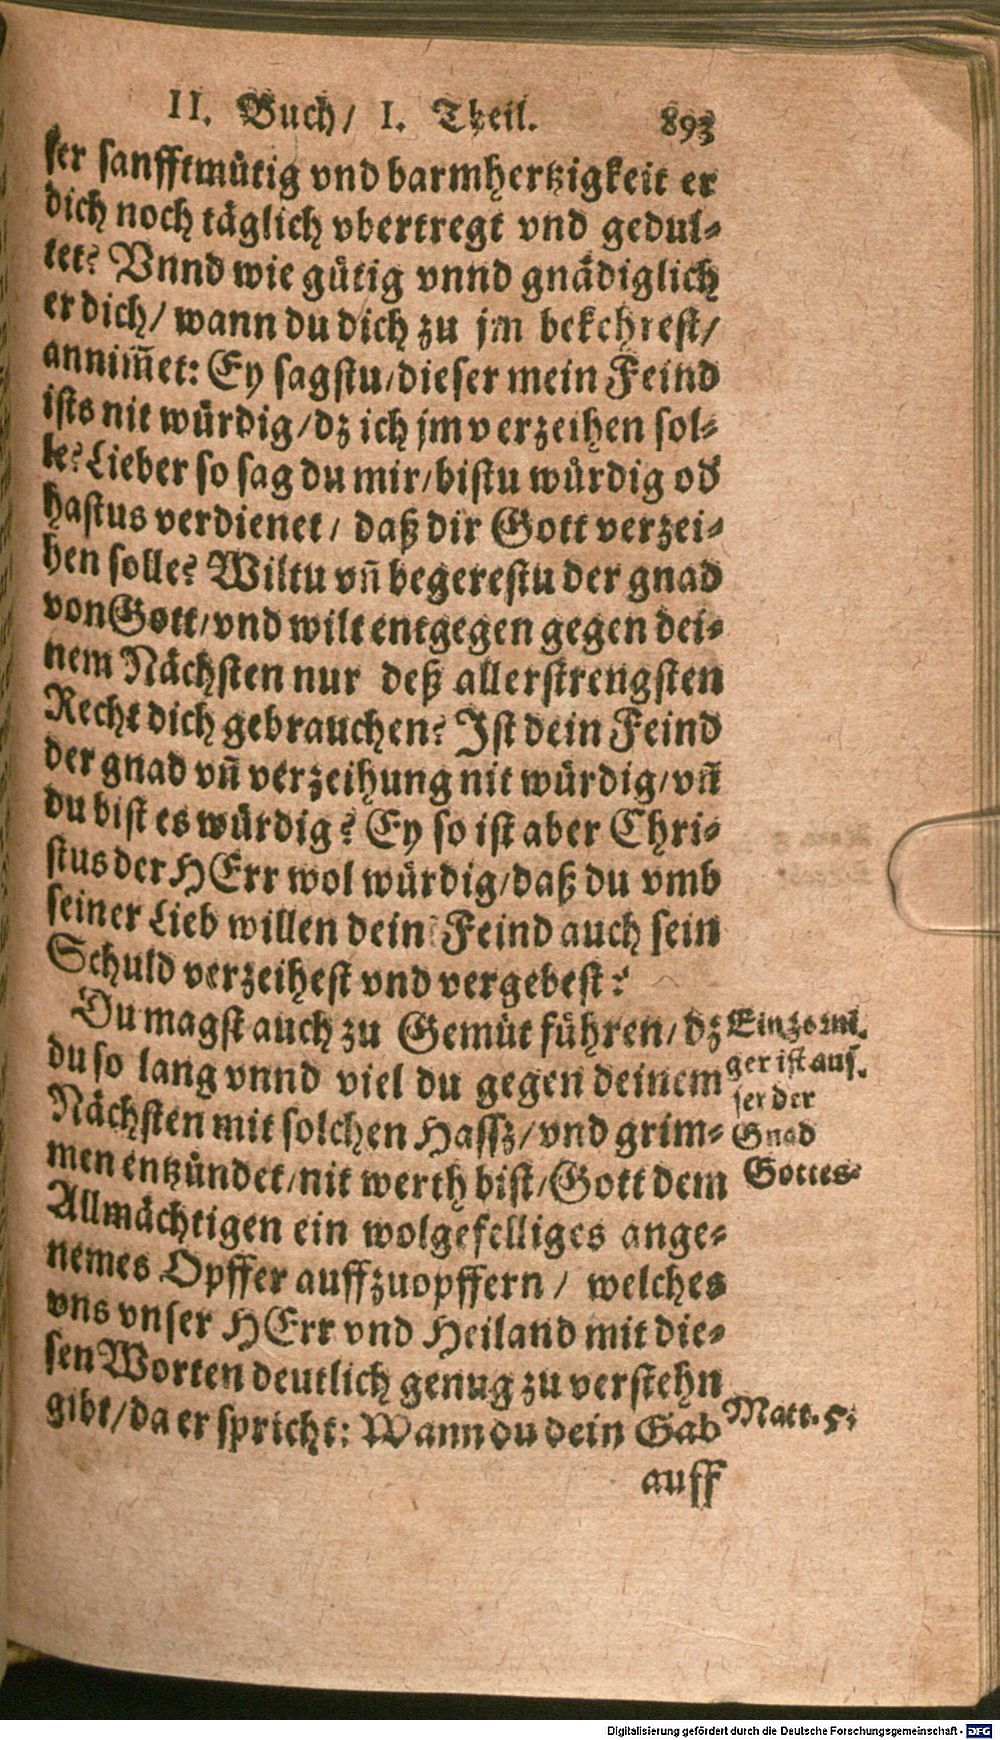 II. Buch/ I. Theil. 893
ker sanfftmütig vnd barmhertzigkeit er
dich noch täglich vbertregt vnd gedul⸗
tet? Vnnd wie gütig vnnd gnädiglich
er dich/ wann du dich zu jm bekehrest/
annim̃et: Ey sagstu/ dieser mein Feind
ists nit würdig/ dz ich jm verzeihen sol⸗
le? Lieber so sag du mir/ bistu würdig od'
hastus verdienet/ daß dir Gott verzei⸗
hen solle? Wiltu vñ begerestu der gnad
von Gott/ vnd wilt entgegen gegen dei⸗
nem Nächsten nur deß allerstrengsten
Recht dich gebrauchen? Ist dein Feind
der gnad vñ verzeihung nit würdig/ vñ
du bist es würdig? Ey so ist aber Chri⸗
stus der HErr wol würdig/ daß du vmb
seiner Lieb willen dein Feind auch sein
Schuld verzeihest vnd vergebest?
Du magst auch zu Gemüt führen/ dz
du so lang vnnd viel du gegen deinem
Nächsten mit solchen Hassz/ vnd grim⸗
men entzündet/ nit werth bist/ Gott dem
Allmächtigen ein wolgefelliges ange⸗
nemes Opffer auffzuopffern/ welches
vns vnser HErr vnd Heiland mit die⸗
sen Worten deutlich genug zu verstehn
gibt/ da er spricht: Wann du dein Gab
auff
Ein zorni⸗
ger ist aus⸗
ser der
Gnad
Gottes.
Matt. 5.
Digitalisierung gefördert durch die Deutsche Forschungsgemeinschaft - DFG